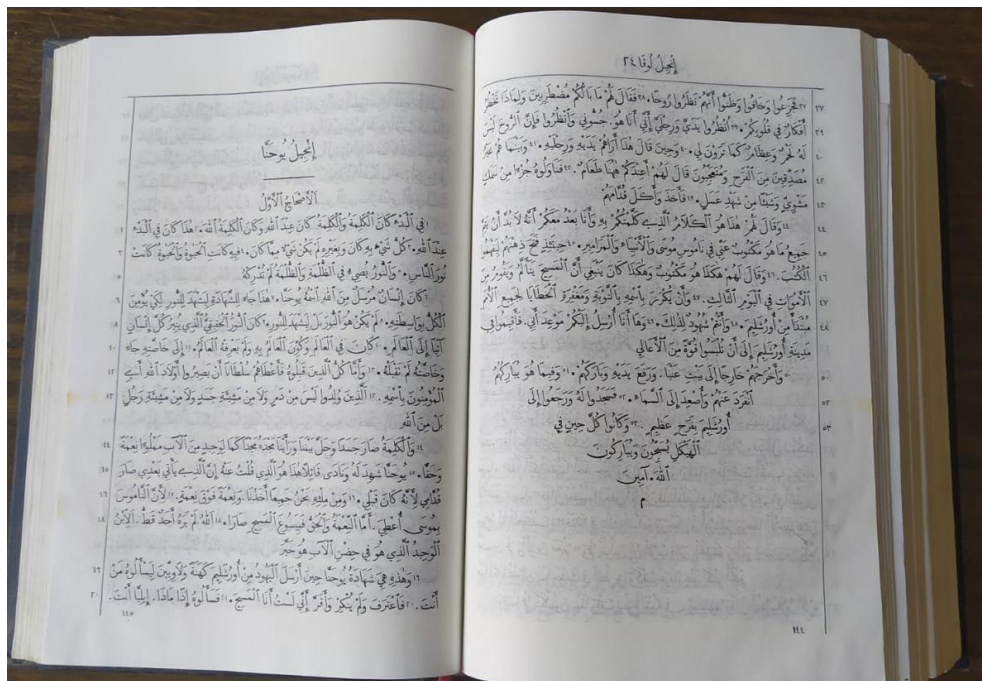 إِنْجِيلُ لُوقَا ٢٤
٣٧ ٣٧ فَجَزِعُوا وَخَافُوا وَظَنُّوا أَنَّهُمْ نَظَرُوا رُوحًا. ٣٨ فَقَالَ لَهُمْ مَا بَالُكُمْ مُضْطَرِبِينَ وَلِمَاذَا تَخْطُرُ
٣٩ أَفْكَارٌ فِي قُلُوبِكُمْ. ٣٩ اُنْظُرُوا يَدَيَّ وَرِجْلَيَّ إِنِّي أَنَا هُوَ. جُسُّونِي وَٱنْظُرُوا فَإِنَّ ٱلرُّوحَ لَيْسَ
٤٠ لَهُ لَحْمٌ وَعِظَامٌ كَمَا تَرَوْنَ لِي. ٤٠ وَحِينَ قَالَ هٰذَا أَرَاهُمْ يَدَيْهِ وَرِجْلَيْهِ. ٤١ وَبَيْنَمَا هُمْ غَيْرُ
٤٢ مُصَدِّقِينَ مِنَ ٱلْفَرَحِ وَمُتَعَجِّبُونَ قَالَ لَهُمْ أَعِنْدَكُمْ هٰهُنَا طَعَامٌ. ٤٢ فَنَاوَلُوهُ جُزْءًا مِنْ سَمَكٍ
٤٣ مَشْوِيٍّ وَشَيْئًا مِنْ شَهْدِ عَسَلٍ. ٤٣ فَأَخَذَ وَأَكَلَ قُدَّامَهُمْ
٤٤ ٤٤ وَقَالَ لَهُمْ هٰذَا هُوَ ٱلْكَلَامُ ٱلَّذِي كَلَّمْتُكُمْ بِهِ وَأَنَا بَعْدُ مَعَكُمْ أَنَّهُ لَا بُدَّ أَنْ يَتِمَّ
٤٥ جَمِيعُ مَا هُوَ مَكْتُوبٌ عَنِّي فِي نَامُوسِ مُوسَى وَٱلْأَنْبِيَاءِ وَٱلْمَزَامِيرِ. ٤٥ حِينَئِذٍ فَتَحَ ذِهْنَهُمْ لِيَفْهَمُوا
٤٦ ٱلْكُتُبَ. ٤٦ وَقَالَ لَهُمْ هٰكَذَا هُوَ مَكْتُوبٌ وَهٰكَذَا كَانَ يَنْبَغِي أَنَّ ٱلْمَسِيحَ يَتَأَلَّمُ وَيَقُومُ مِنَ
٤٧ ٱلْأَمْوَاتِ فِي ٱلْيَوْمِ ٱلثَّالِثِ. ٤٧ وَأَنْ يُكْرَزَ بِٱسْمِهِ بِٱلتَّوْبَةِ وَمَغْفِرَةِ ٱلْخَطَايَا لِجَمِيعِ ٱلْأُمَمِ
٤٨ مُبْتَدَأً مِنْ أُورُشَلِيمَ. ٤٨ وَأَنْتُمْ شُهُودٌ لِذٰلِكَ. ٤٩ وَهَا أَنَا أُرْسِلُ إِلَيْكُمْ مَوْعِدَ أَبِي. فَأَقِيمُوا فِي
مَدِينَةِ أُورُشَلِيمَ إِلَى أَنْ تُلْبَسُوا قُوَّةً مِنَ ٱلْأَعَالِي
٥٠ ٥٠ وَأَخْرَجَهُمْ خَارِجًا إِلَى بَيْتِ عَنْيَا. وَرَفَعَ يَدَيْهِ وَبَارَكَهُمْ. ٥١ وَفِيمَا هُوَ يُبَارِكُهُمُ
٥٢ ٱنْفَرَدَ عَنْهُمْ وَأُصْعِدَ إِلَى ٱلسَّمَاءِ. ٥٢ فَسَجَدُوا لَهُ وَرَجَعُوا إِلَى
٥٣ أُورُشَلِيمَ بِفَرَحٍ عَظِيمٍ. ٥٣ وَكَانُوا كُلَّ حِينٍ فِي
ٱلْهَيْكَلِ يُسَبِّحُونَ وَيُبَارِكُونَ
ٱللهَ. آمِينَ
م
١٤٤
إِنْجِيلُ يُوحَنَّا
اَلْأَصْحَاحُ ٱلْأَوَّلُ
١ فِي ٱلْبَدْءِ كَانَ ٱلْكَلِمَةُ وَٱلْكَلِمَةُ كَانَ عِنْدَ ٱللهِ وَكَانَ ٱلْكَلِمَةُ ٱللهَ. ٢ هٰذَا كَانَ فِي ٱلْبَدْءِ
عِنْدَ ٱللهِ. ٣ كُلُّ شَيْءٍ بِهِ كَانَ وَبِغَيْرِهِ لَمْ يَكُنْ شَيْءٌ مِمَّا كَانَ. ٤ فِيهِ كَانَتِ ٱلْحَيٰوةُ وَٱلْحَيٰوةُ كَانَتْ ٢
نُورَ ٱلنَّاسِ. ٥ وَٱلنُّورُ يُضِيءُ فِي ٱلظُّلْمَةِ وَٱلظُّلْمَةُ لَمْ تُدْرِكْهُ ٥
٦ كَانَ إِنْسَانٌ مُرْسَلٌ مِنَ ٱللهِ ٱسْمُهُ يُوحَنَّا. ٧ هٰذَا جَاءَ لِلشَّهَادَةِ لِيَشْهَدَ لِلنُّورِ لِكَيْ يُؤْمِنَ ٦
ٱلْكُلُّ بِوَاسِطَتِهِ. ٨ لَمْ يَكُنْ هُوَ ٱلنُّورَ بَلْ لِيَشْهَدَ لِلنُّورِ. ٩ كَانَ ٱلنُّورُ ٱلْحَقِيقِيُّ ٱلَّذِي يُنِيرُ كُلَّ إِنْسَانٍ ٨
آتِيًا إِلَى ٱلْعَالَمِ. ١٠ كَانَ فِي ٱلْعَالَمِ وَكُوِّنَ ٱلْعَالَمُ بِهِ وَلَمْ يَعْرِفْهُ ٱلْعَالَمُ. ١١ إِلَى خَاصَّتِهِ جَاءَ ١٠
وَخَاصَّتُهُ لَمْ تَقْبَلْهُ. ١٢ وَأَمَّا كُلُّ ٱلَّذِينَ قَبِلُوهُ فَأَعْطَاهُمْ سُلْطَانًا أَنْ يَصِيرُوا أَوْلَادَ ٱللهِ أَيِ ١٢
ٱلْمُؤْمِنُونَ بِٱسْمِهِ. ١٣ اَلَّذِينَ وُلِدُوا لَيْسَ مِنْ دَمٍ وَلَا مِنْ مَشِيئَةِ جَسَدٍ وَلَا مِنْ مَشِيئَةِ رَجُلٍ ١٣
بَلْ مِنَ ٱللهِ
١٤ وَٱلْكَلِمَةُ صَارَ جَسَدًا وَحَلَّ بَيْنَنَا وَرَأَيْنَا مَجْدَهُ مَجْدًا كَمَا لِوَحِيدٍ مِنَ ٱلْآبِ مَمْلُوءًا نِعْمَةً ١٤
وَحَقًّا. ١٥ يُوحَنَّا شَهِدَ لَهُ وَنَادَى قَائِلًا هٰذَا هُوَ ٱلَّذِي قُلْتُ عَنْهُ إِنَّ ٱلَّذِي يَأْتِي بَعْدِي صَارَ ١٥
قُدَّامِي لِأَنَّهُ كَانَ قَبْلِي. ١٦ وَمِنْ مِلْئِهِ نَحْنُ جَمِيعًا أَخَذْنَا. وَنِعْمَةً فَوْقَ نِعْمَةٍ. ١٧ لِأَنَّ ٱلنَّامُوسَ ١٦
بِمُوسَى أُعْطِيَ. أَمَّا ٱلنِّعْمَةُ وَٱلْحَقُّ فَبِيَسُوعَ ٱلْمَسِيحِ صَارَا. ١٨ اَللهُ لَمْ يَرَهُ أَحَدٌ قَطُّ. اَلِٱبْنُ ١٨
ٱلْوَحِيدُ ٱلَّذِي هُوَ فِي حِضْنِ ٱلْآبِ هُوَ خَبَّرَ
١٩ وَهٰذِهِ هِيَ شَهَادَةُ يُوحَنَّا حِينَ أَرْسَلَ ٱلْيَهُودُ مِنْ أُورُشَلِيمَ كَهَنَةً وَلَاوِيِّينَ لِيَسْأَلُوهُ مَنْ ١٩
أَنْتَ. ٢٠ فَٱعْتَرَفَ وَلَمْ يُنْكِرْ وَأَقَرَّ أَنِّي لَسْتُ أَنَا ٱلْمَسِيحَ. ٢١ فَسَأَلُوهُ إِذًا مَاذَا. إِيلِيَّا أَنْتَ. ٢٠
١٤٥